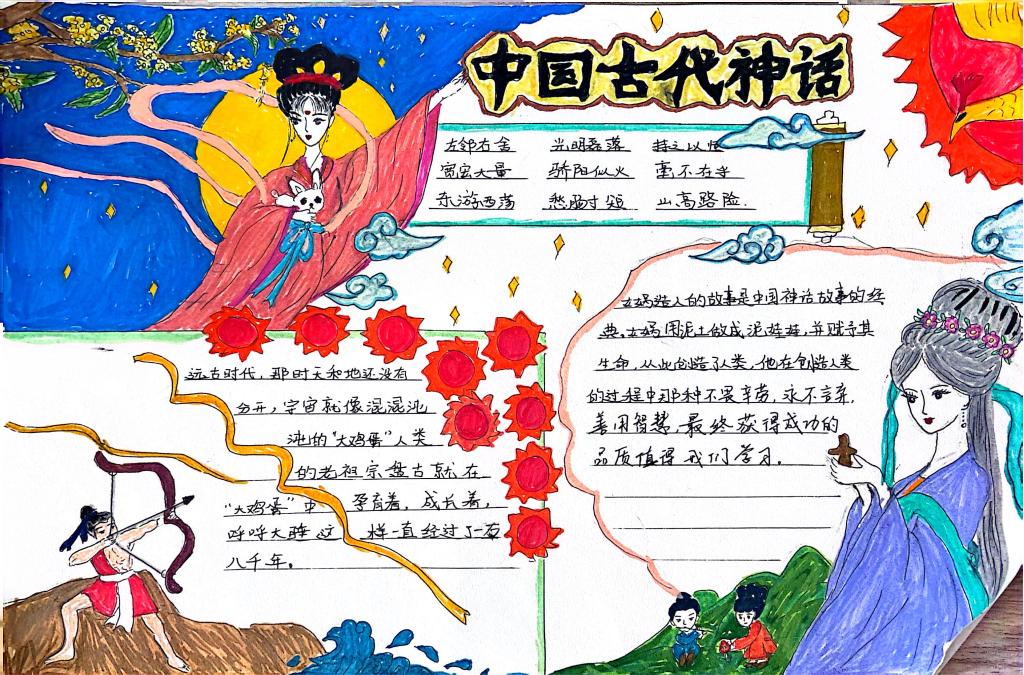 中国古代神话
左邻右舍 光明磊落 持之以恒
宽宏大量 骄阳似火 毫不在乎
东游西荡 愁肠寸短 山高路险.
女娲造人的故事是中国神话故事的经
典。女娲用泥土做成泥娃娃,并赋予其
生命,从此创造了人类,他在创造人类
的过程中那种不畏辛劳,永不言弃,
善用智慧,最终获得成功的
品质值得我们学习.
远古时代,那时天和地还没有
分开,宇宙就像混混沌
沌的"大鸡蛋"人类
的老祖宗盘古就在
"大鸡蛋"中 孕育着,成长着,
呼呼大睡这 样一直经过了一万
八千年。